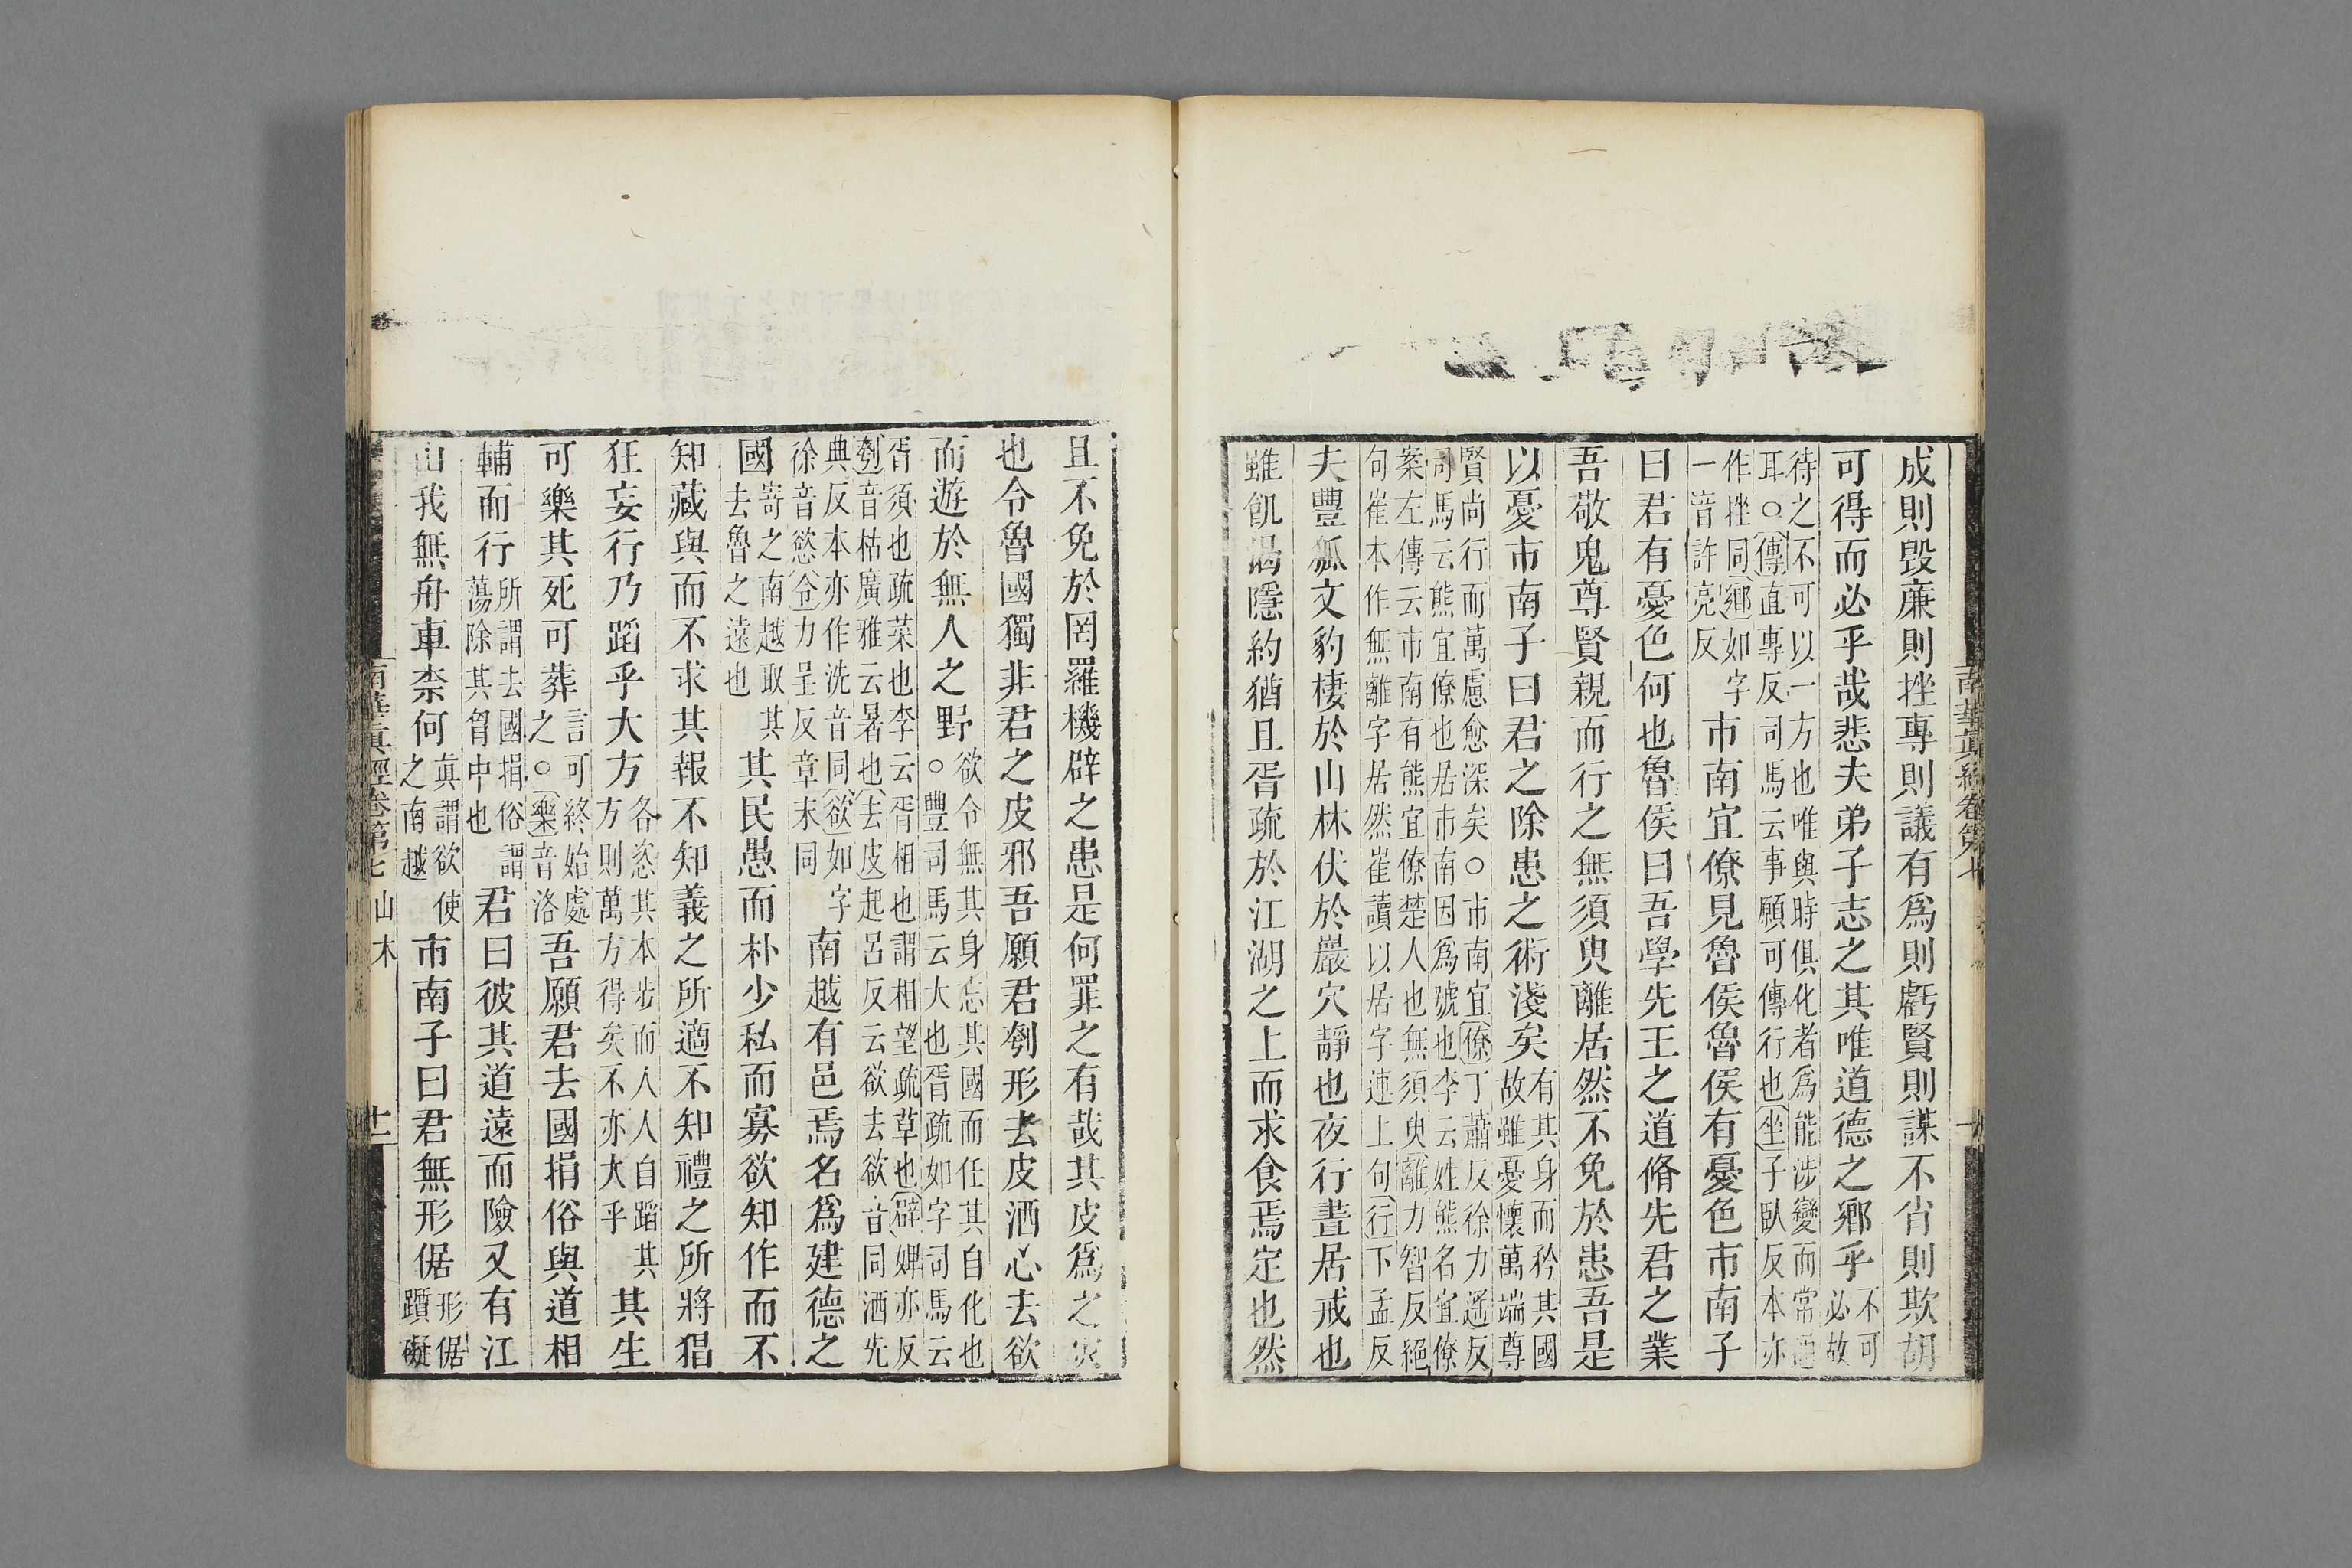 南華真經卷第七
成則毀廉則挫專則議有爲則虧賢則謀不肖則欺胡
可得而必乎哉悲夫弟子志之其唯道德之鄉乎不可
必故
待之不可以一方也唯與時俱化者爲能涉變而常通
耳○傳直專反司馬云事願可傳行也坐子臥反本亦
作挫同鄉如字
一音許亮反市南宜僚見魯侯魯侯有憂色市南子
曰君有憂色何也魯侯曰吾學先王之道脩先君之業
吾敬鬼尊賢親而行之無須臾離居然不免於患吾是
以憂市南子曰君之除患之術淺矣有其身而矜其國
故雖憂懷萬端尊
賢尚行而萬慮愈深矣○市南宜僚丁蕭反徐力遥反
司馬云熊宜僚也居市南因爲號也李云姓熊名宜僚
案左傳云市南有熊宜僚楚人也無須臾離力智反絕
句崔本作無離字居然崔讀以居字連上句行下孟反
夫豐狐文豹棲於山林伏於巖穴靜也夜行晝居戒也
雖飢渴隱約猶且胥疏於江湖之上而求食焉定也然
且不免於罔羅機辟之患是何罪之有哉其皮爲之災
也今魯國獨非君之皮邪吾願君刳形去皮洒心去欲
而遊於無人之野欲令無其身忘其國而任其自化也
○豐司馬云大也胥疏如字司馬云
胥須也疏菜也李云胥相也謂相望疏草也辟婢亦反
刳音枯廣雅云屠也去皮起呂反云欲去欲音同洒先
典反本亦作洗音同欲如字
徐音慾令力呈反章末同南越有邑焉名爲建德之
國寄之南越取其
去魯之遠也其民愚而朴少私而寡欲知作而不
知藏與而不求其報不知義之所適不知禮之所將猖
狂妄行乃蹈乎大方各恣其本步而人人自蹈其
方則萬方得矣不亦大乎其生
可樂其死可葬言可終始處
之○樂音洛吾願君去國捐俗與道相
輔而行所謂去國捐俗謂
蕩除其胷中也君曰彼其道遠而險又有江
山我無舟車柰何真謂欲使
之南越市南子曰君無形倨形倨
躓礙
南華真經卷第七 山木 十二